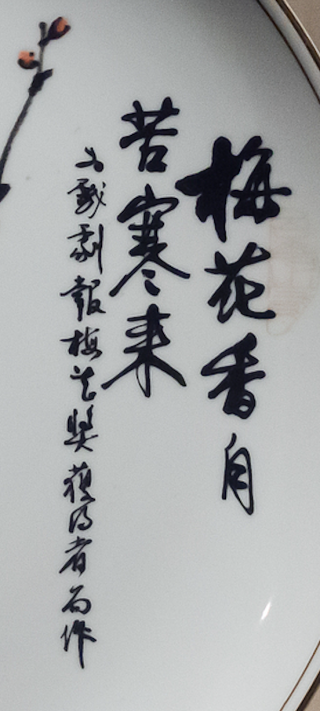 梅花香自
苦寒来
为戲劇報梅花獎獲得者而作